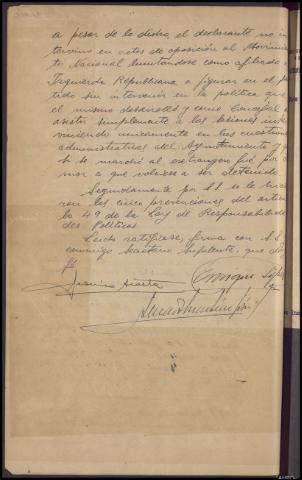 a pesar de lo dicho, el declarante no in
tervino en actos de oposición al Movimien
to Nacional limitandose como afiliado a
Izquierda Republicana a figurar en el par
tido sin intervenir en la política que
el mismo desarrolló y como Concejal a
asistir simplemente a las sesiones inter
viniendo unicamente en las cuestiones
administrativas del Ayuntamiento y q
si se marchó al extranjero fué por te
mor a que volviese a ser detenido
Seguidamente por S.S. se le hicie
ron las cinco prevenciones del artícu
lo 49 de la Ley de Responsabilida
des Políticas
Leida ratificase, firma con S.S.
conmigo Secretario Suplente, que doy
fe
Enrique